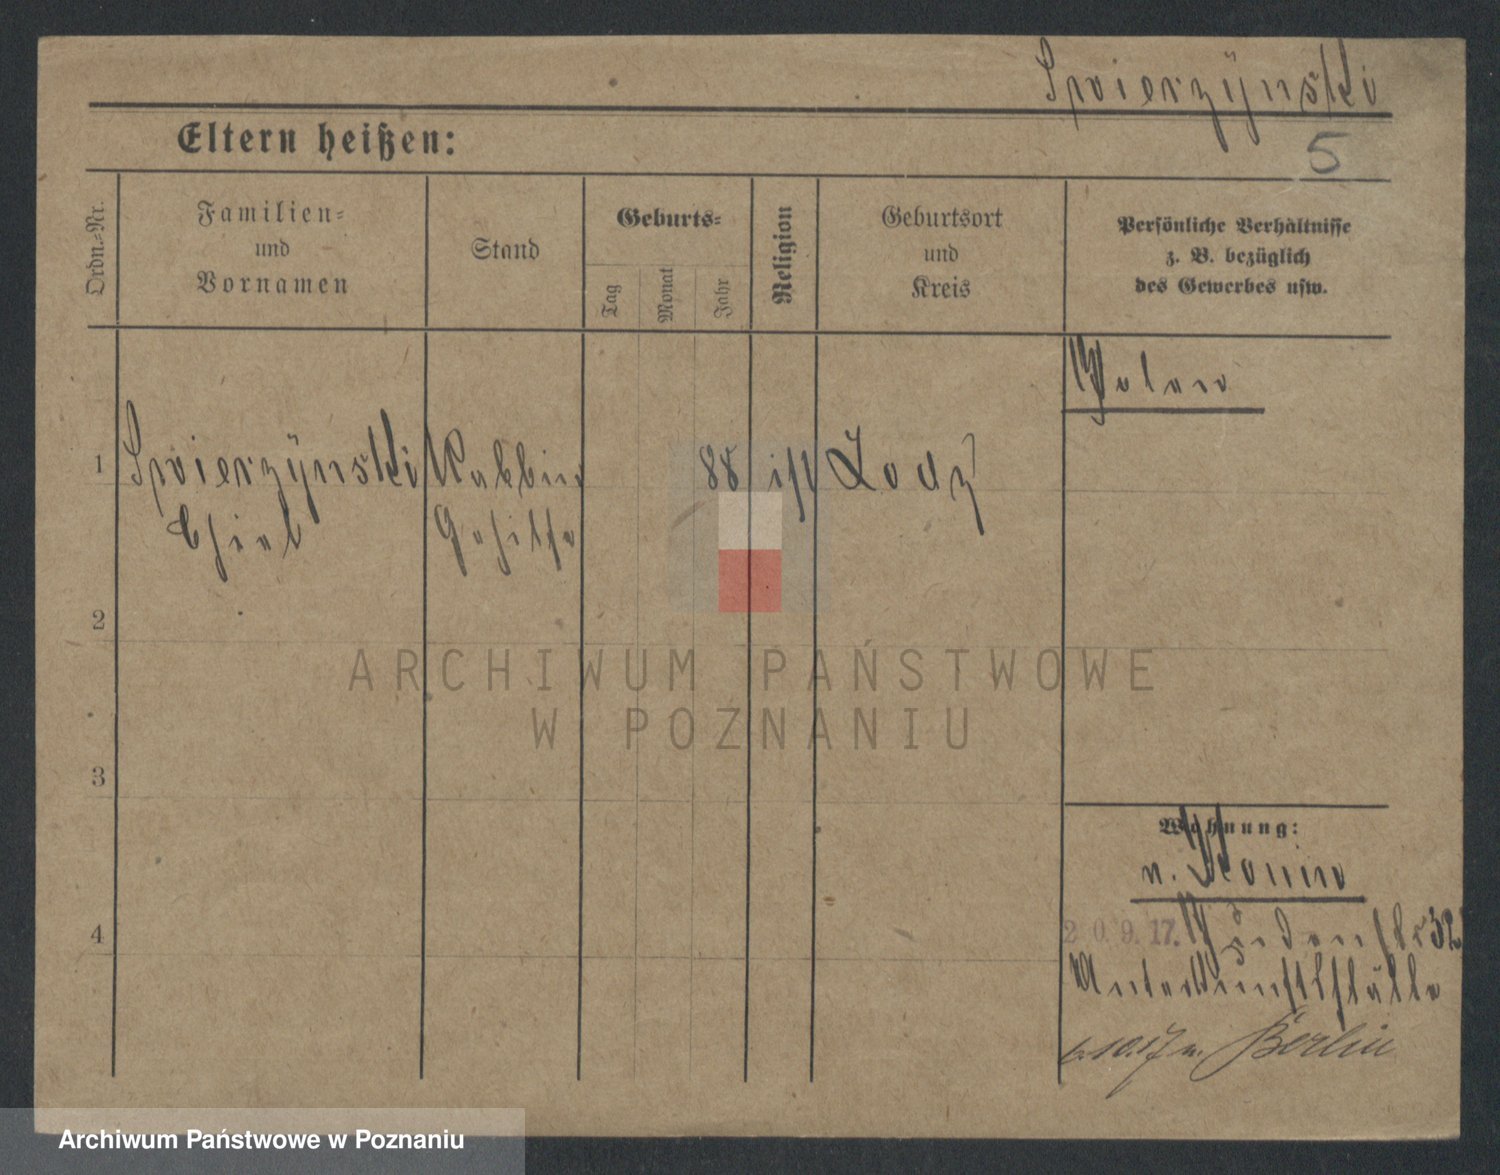 Spvierzÿnski
5
Eltern heißen:
Ordn.-Nr.
Familien-
und
Vornamen
Stand
Geburts-
Tag
Monat
Jahr
Religion
Geburtsort
und
Kreis
Persönliche Verhältnisse
z. B. bezüglich
des Gewerbes usw.
Polen
1 Spvierzÿnski Rabbin 88 isr Lodz
Gehilfe
2
3
4
Wohnung:
n. Konin
20.9.17. Judenstr 32
Unterkunftsstelle
6.10.17 n. Berlin
ARCHIWUM PAŃSTWOWE
W POZNANIU
Archiwum Państwowe w Poznaniu